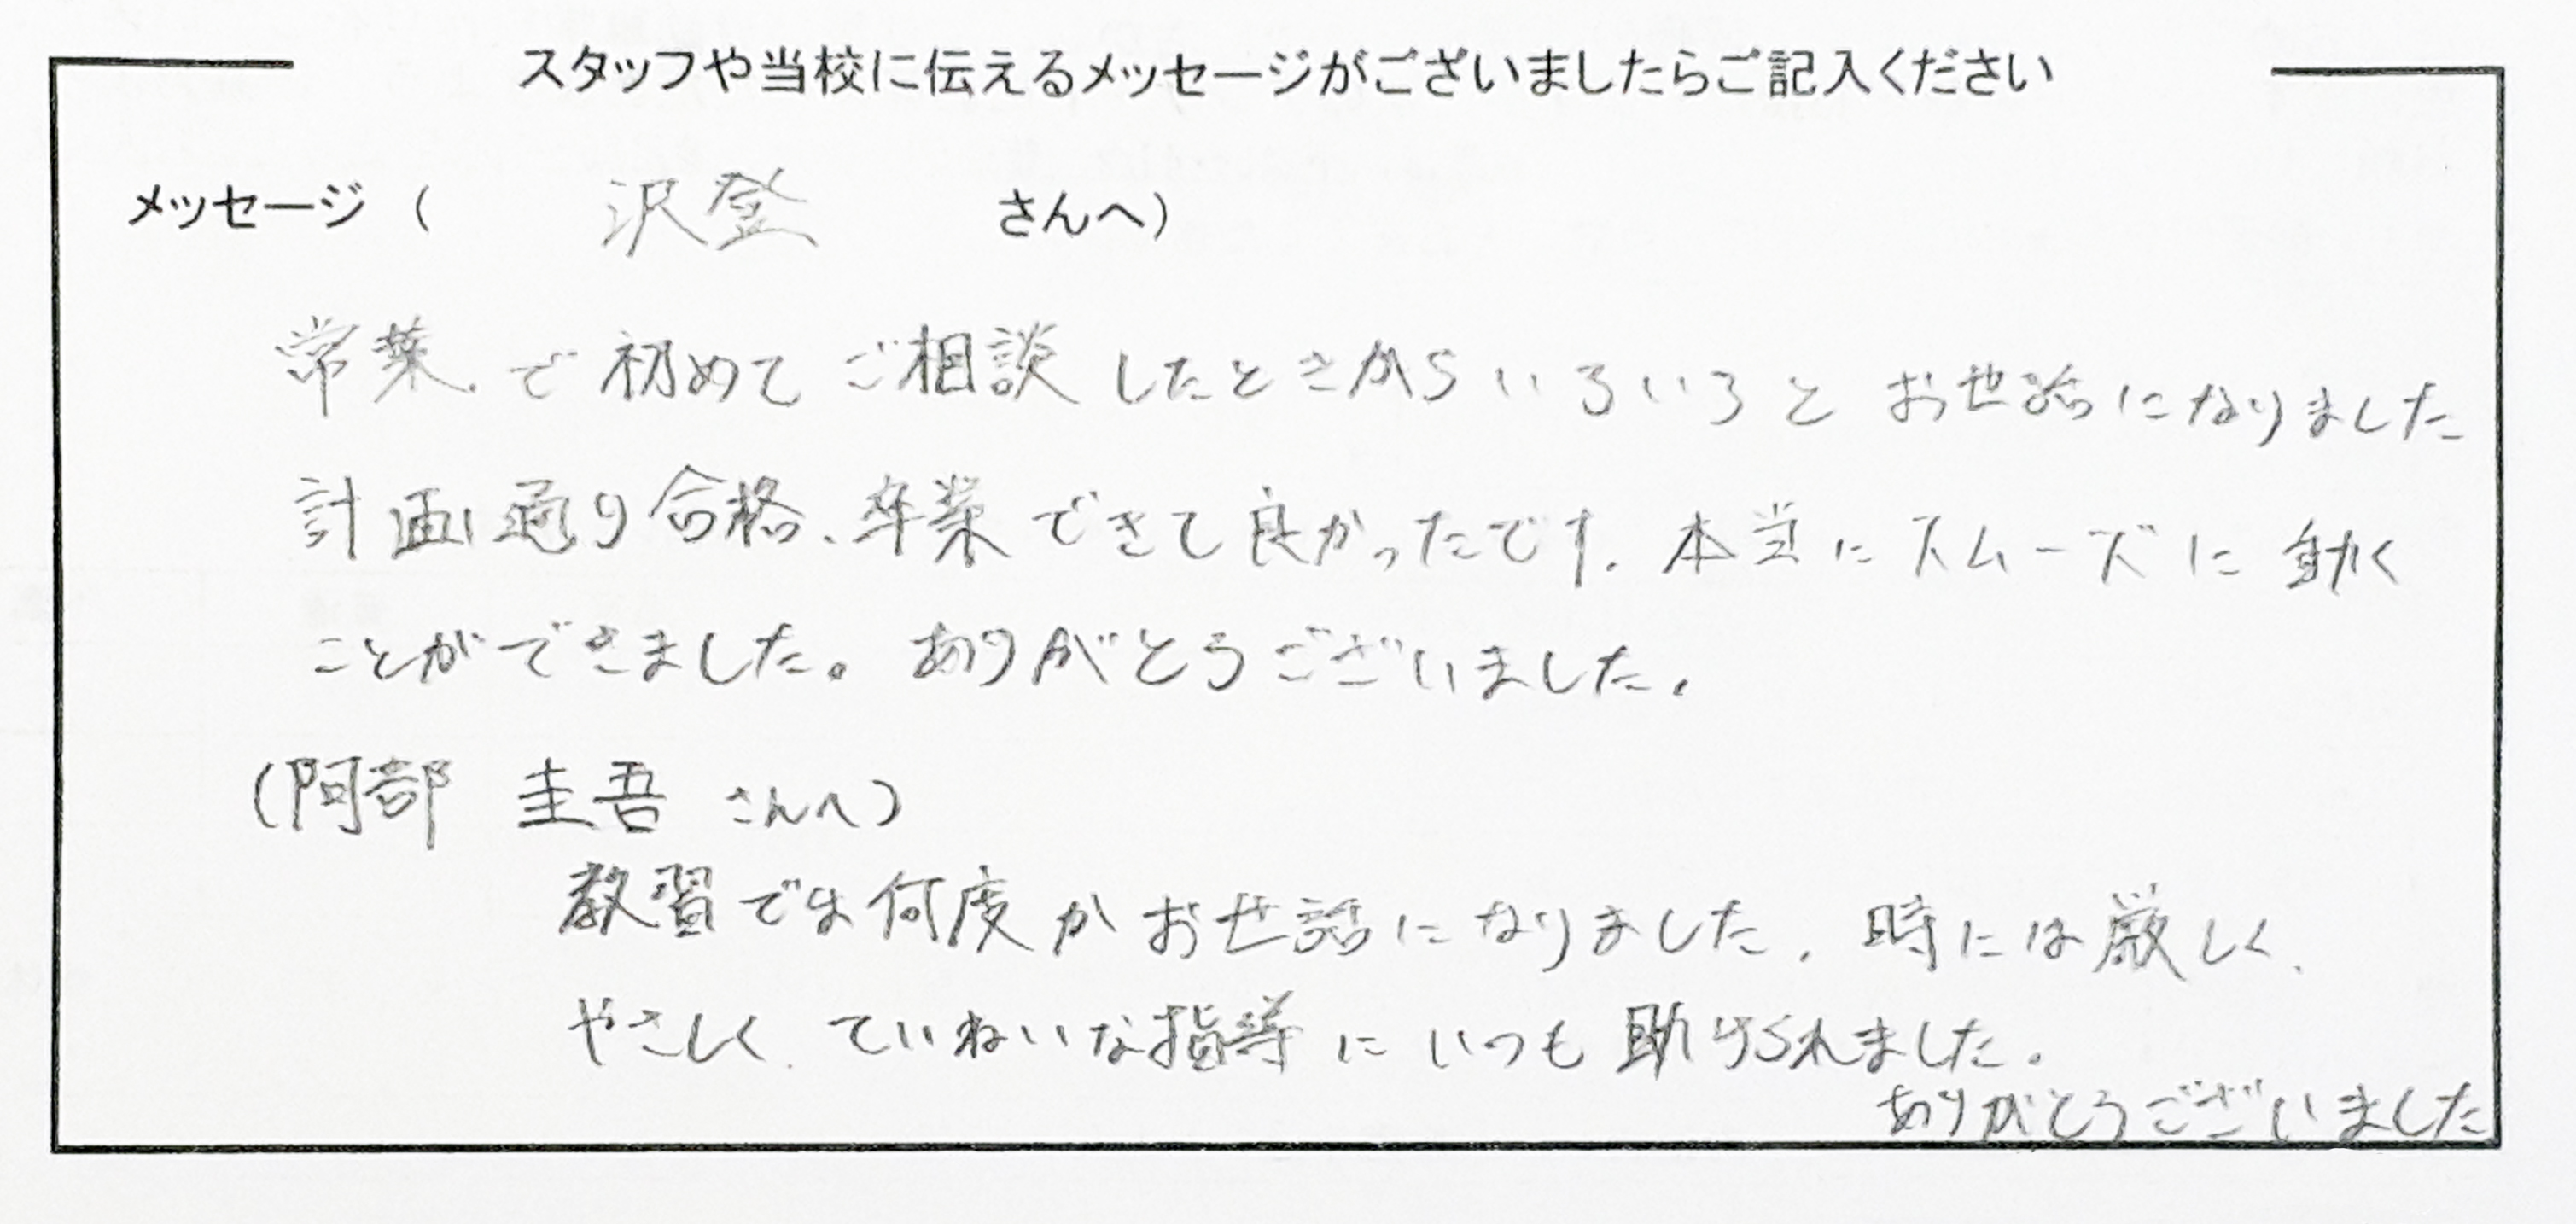 スタッフや当校に伝えるメッセージがございましたらご記入ください
メッセージ ( 沢登 さんへ)
常葉.で初めてご相談したときからいろいろとお世話になりました
計画通り合格、卒業できて良かったです。本当にスムーズに動く
ことができました。ありがとうございました。
(阿部 圭吾 さんへ)
教習では何度かお世話になりました。時には厳しく、
やさしく、ていねいな指導にいつも助けられました。
ありがとうございました